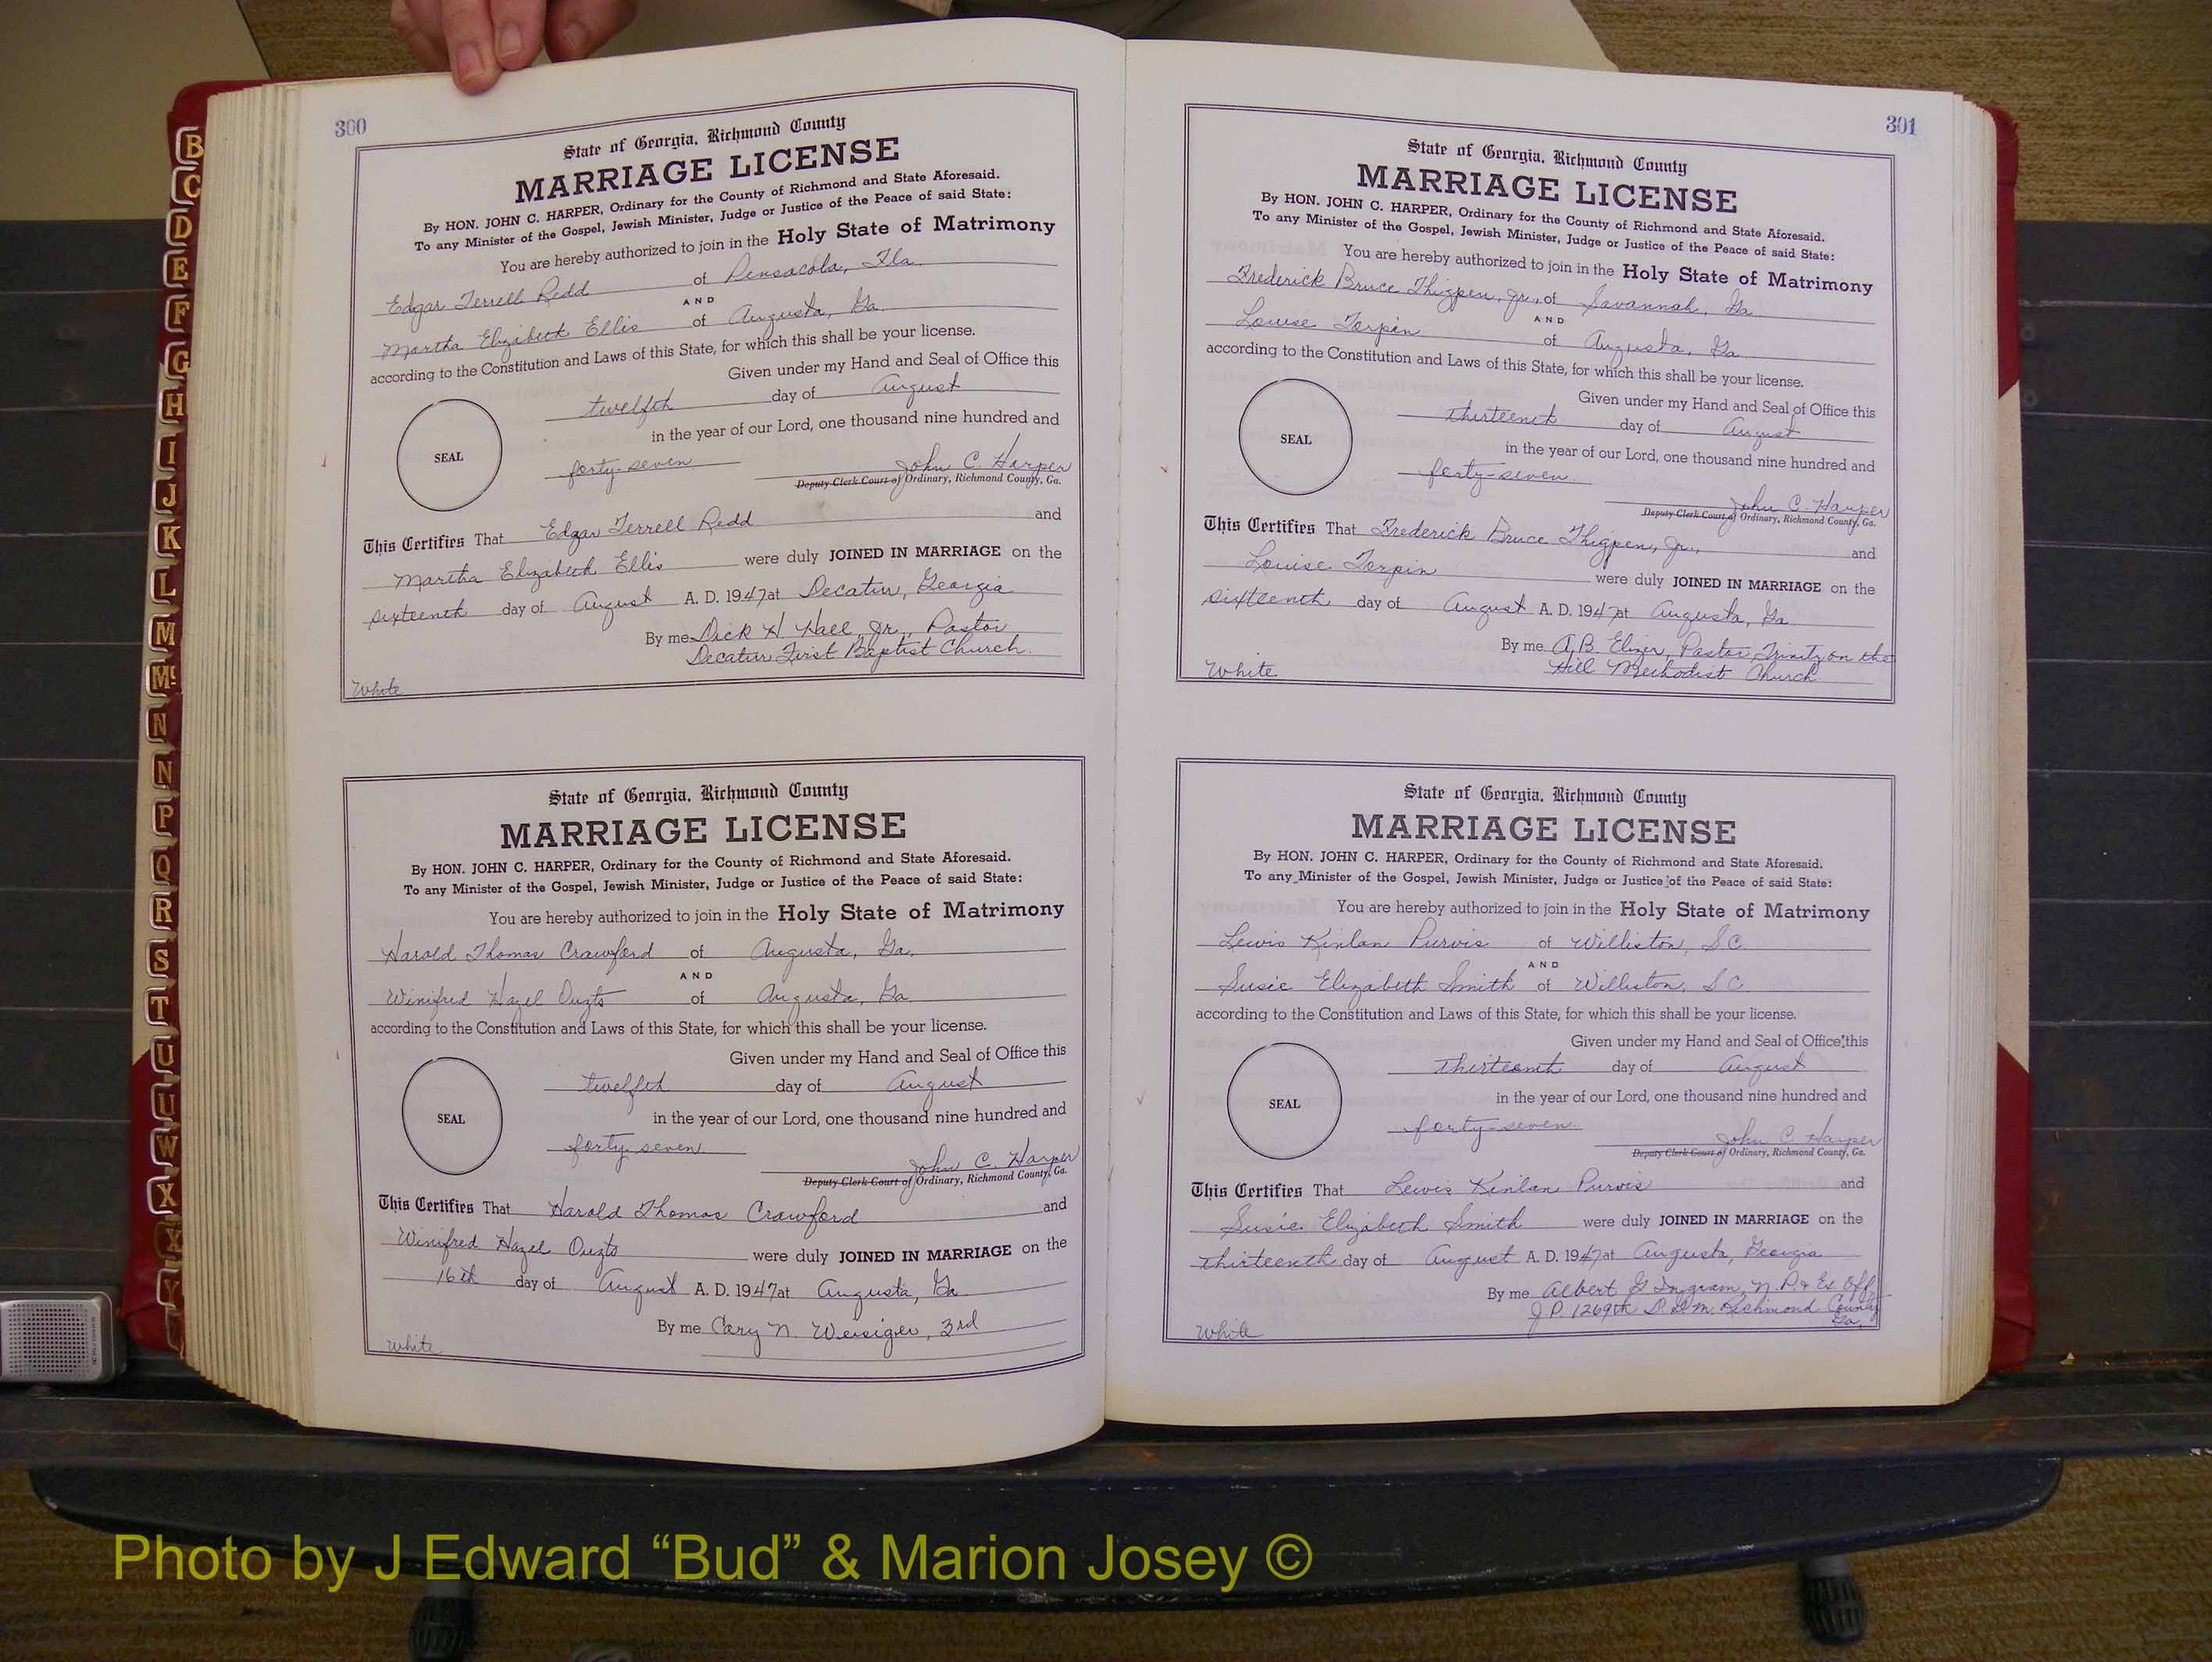 300
State of Georgia, Richmond County
MARRIAGE LICENSE
By HON. JOHN C. HARPER, Ordinary for the County of Richmond and State Aforesaid.
To any Minister of the Gospel, Jewish Minister, Judge or Justice of the Peace of said State:
You are hereby authorized to join in the Holy State of Matrimony
Edgar Terrell Redd of Pensacola, Fla
AND
Martha Elizabeth Ellis of Augusta, Ga.
according to the Constitution and Laws of this State, for which this shall be your license.
Given under my Hand and Seal of Office this
twelfth day of August
in the year of our Lord, one thousand nine hundred and
SEAL
forty-seven John C. Harper
Deputy Clerk Court of Ordinary, Richmond County, Ga.
This Certifies That Edgar Terrell Redd and
Martha Elizabeth Ellis were duly JOINED IN MARRIAGE on the
sixteenth day of August A. D. 1947 at Decatur, Georgia
By me Dick H Hall, Jr., Pastor
Decatur First Baptist Church.
White
State of Georgia, Richmond County
MARRIAGE LICENSE
By HON. JOHN C. HARPER, Ordinary for the County of Richmond and State Aforesaid.
To any Minister of the Gospel, Jewish Minister, Judge or Justice of the Peace of said State:
You are hereby authorized to join in the Holy State of Matrimony
Harold Thomas Crawford of Augusta, Ga.
AND
Winifred Hazel Ouzts of Augusta, Ga
according to the Constitution and Laws of this State, for which this shall be your license.
Given under my Hand and Seal of Office this
twelfth day of August
SEAL
in the year of our Lord, one thousand nine hundred and
forty-seven. John C. Harper
Deputy Clerk Court of Ordinary, Richmond County, Ga.
This Certifies That Harold Thomas Crawford and
Winifred Hazel Ouzts were duly JOINED IN MARRIAGE on the
16th day of August A. D. 1947 at Augusta, Ga
By me Cary N. Weisiger, 3rd
White
301
State of Georgia, Richmond County
MARRIAGE LICENSE
By HON. JOHN C. HARPER, Ordinary for the County of Richmond and State Aforesaid.
To any Minister of the Gospel, Jewish Minister, Judge or Justice of the Peace of said State:
You are hereby authorized to join in the Holy State of Matrimony
Frederick Bruce Thigpen, Jr., of Savannah, Ga
AND
Louise Terpin of Augusta, Ga
according to the Constitution and Laws of this State, for which this shall be your license.
Given under my Hand and Seal of Office this
thirteenth day of August
SEAL
in the year of our Lord, one thousand nine hundred and
forty-seven. John C. Harper
Deputy Clerk Court of Ordinary, Richmond County, Ga.
This Certifies That Frederick Bruce Thigpen, Jr., and
Louise Terpin were duly JOINED IN MARRIAGE on the
sixteenth day of August A. D. 1947 at Augusta, Ga.
By me A.B. Elizer, Pastor, Trinity on the
Hill Methodist Church
White
State of Georgia, Richmond County
MARRIAGE LICENSE
By HON. JOHN C. HARPER, Ordinary for the County of Richmond and State Aforesaid.
To any Minister of the Gospel, Jewish Minister, Judge or Justice of the Peace of said State:
You are hereby authorized to join in the Holy State of Matrimony
Lewis Kinlan Purvis of Williston, S.C.
AND
Susie Elizabeth Smith of Williston, S.C.
according to the Constitution and Laws of this State, for which this shall be your license.
Given under my Hand and Seal of Office this
thirteenth day of August
SEAL
in the year of our Lord, one thousand nine hundred and
forty-seven. John C. Harper
Deputy Clerk Court of Ordinary, Richmond County, Ga.
This Certifies That Lewis Kinlan Purvis and
Susie Elizabeth Smith were duly JOINED IN MARRIAGE on the
thirteenth day of August A. D. 1947 at Augusta, Georgia
By me Albert G Ingram, N.P. & Ex Off.
J.P. 1269th G.M. Richmond County
Ga.
White
B
C
D
E
F
G
H
I
J
K
L
M
Mc
N
N
P
Q
R
S
T
U
U
W
X
X
Y
Photo by J Edward “Bud” & Marion Josey ©